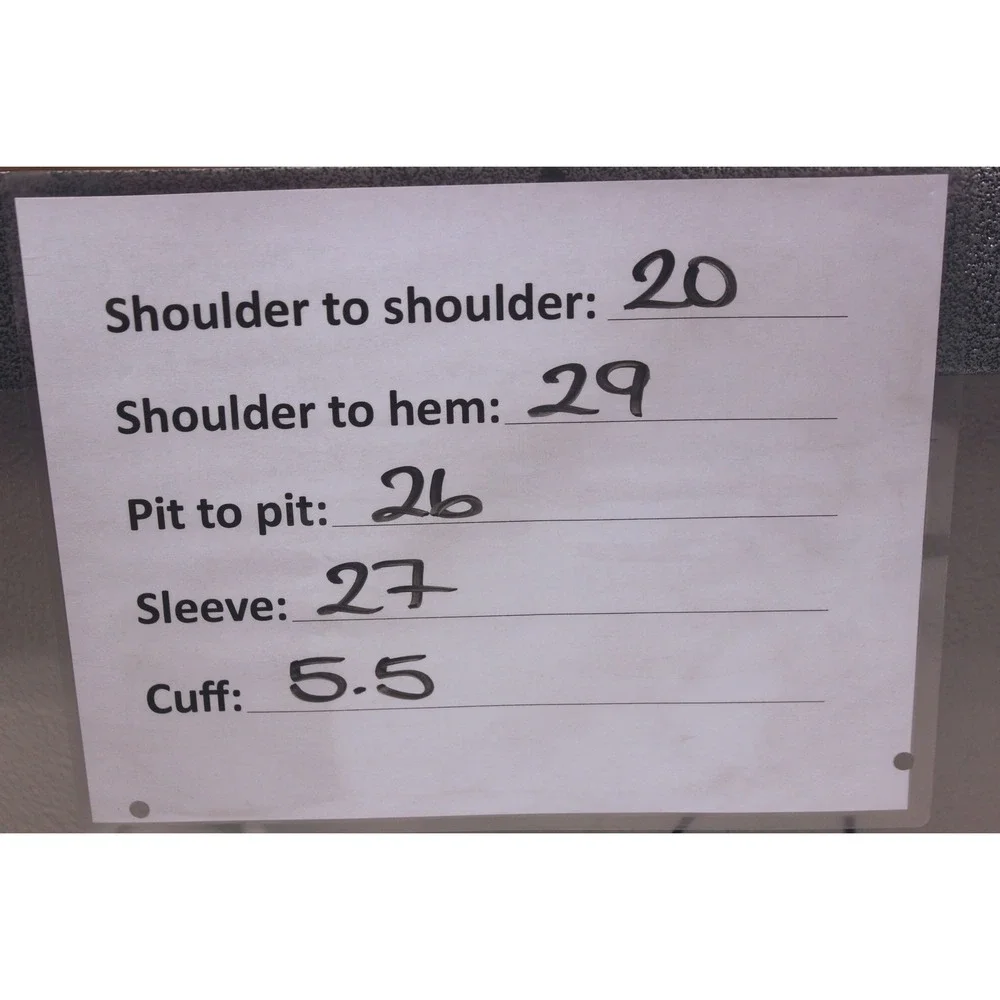 Shoulder to shoulder: 20
Shoulder to hem: 29
Pit to pit: 26
Sleeve: 27
Cuff: 5.5